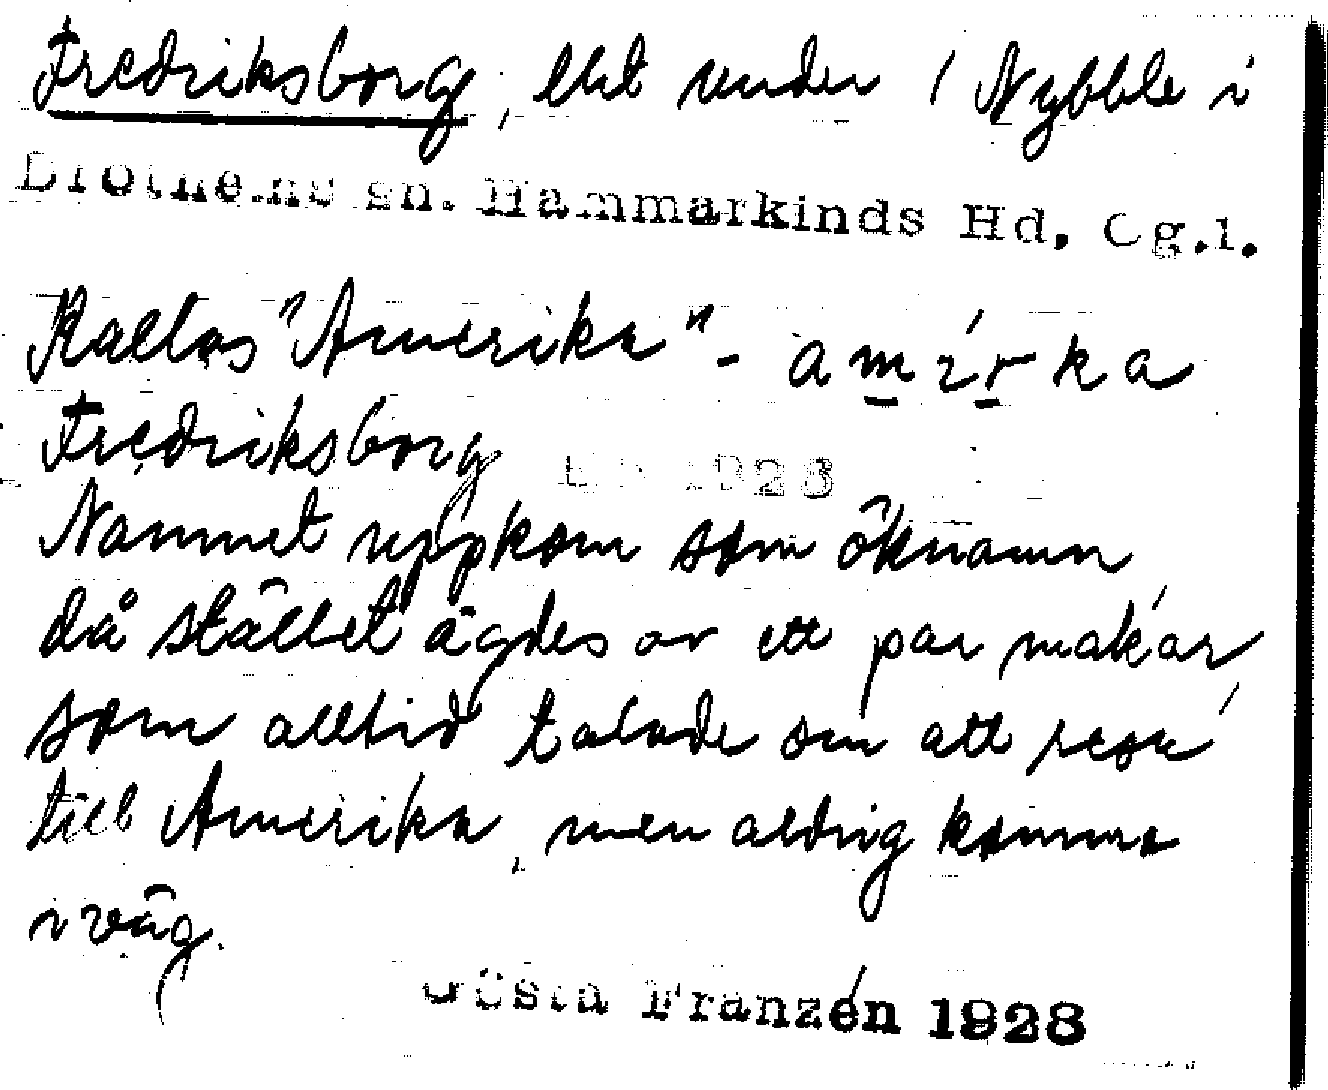 Fredriksborg, lht under 1 Nybble i
Drothems sn. Hammarkinds Hd. Ög.l.
Kallas "Amerika" - amírka
Fredriksborg
1928
Namnet uppkom som öknamn,
då stället ägdes av ett par makar,
som alltid talade om att resa
till Amerika, men aldrig kommo
i väg.
Gösta Franzén 1928